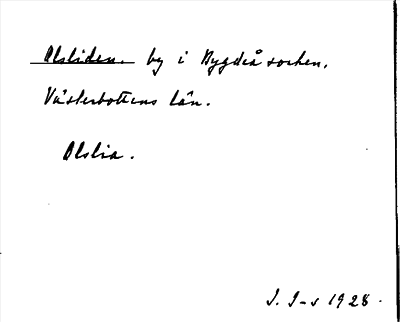 Olsliden. by i Bygdeå socken,
Västerbottens län.
Olslia.
J. J-s 1928.